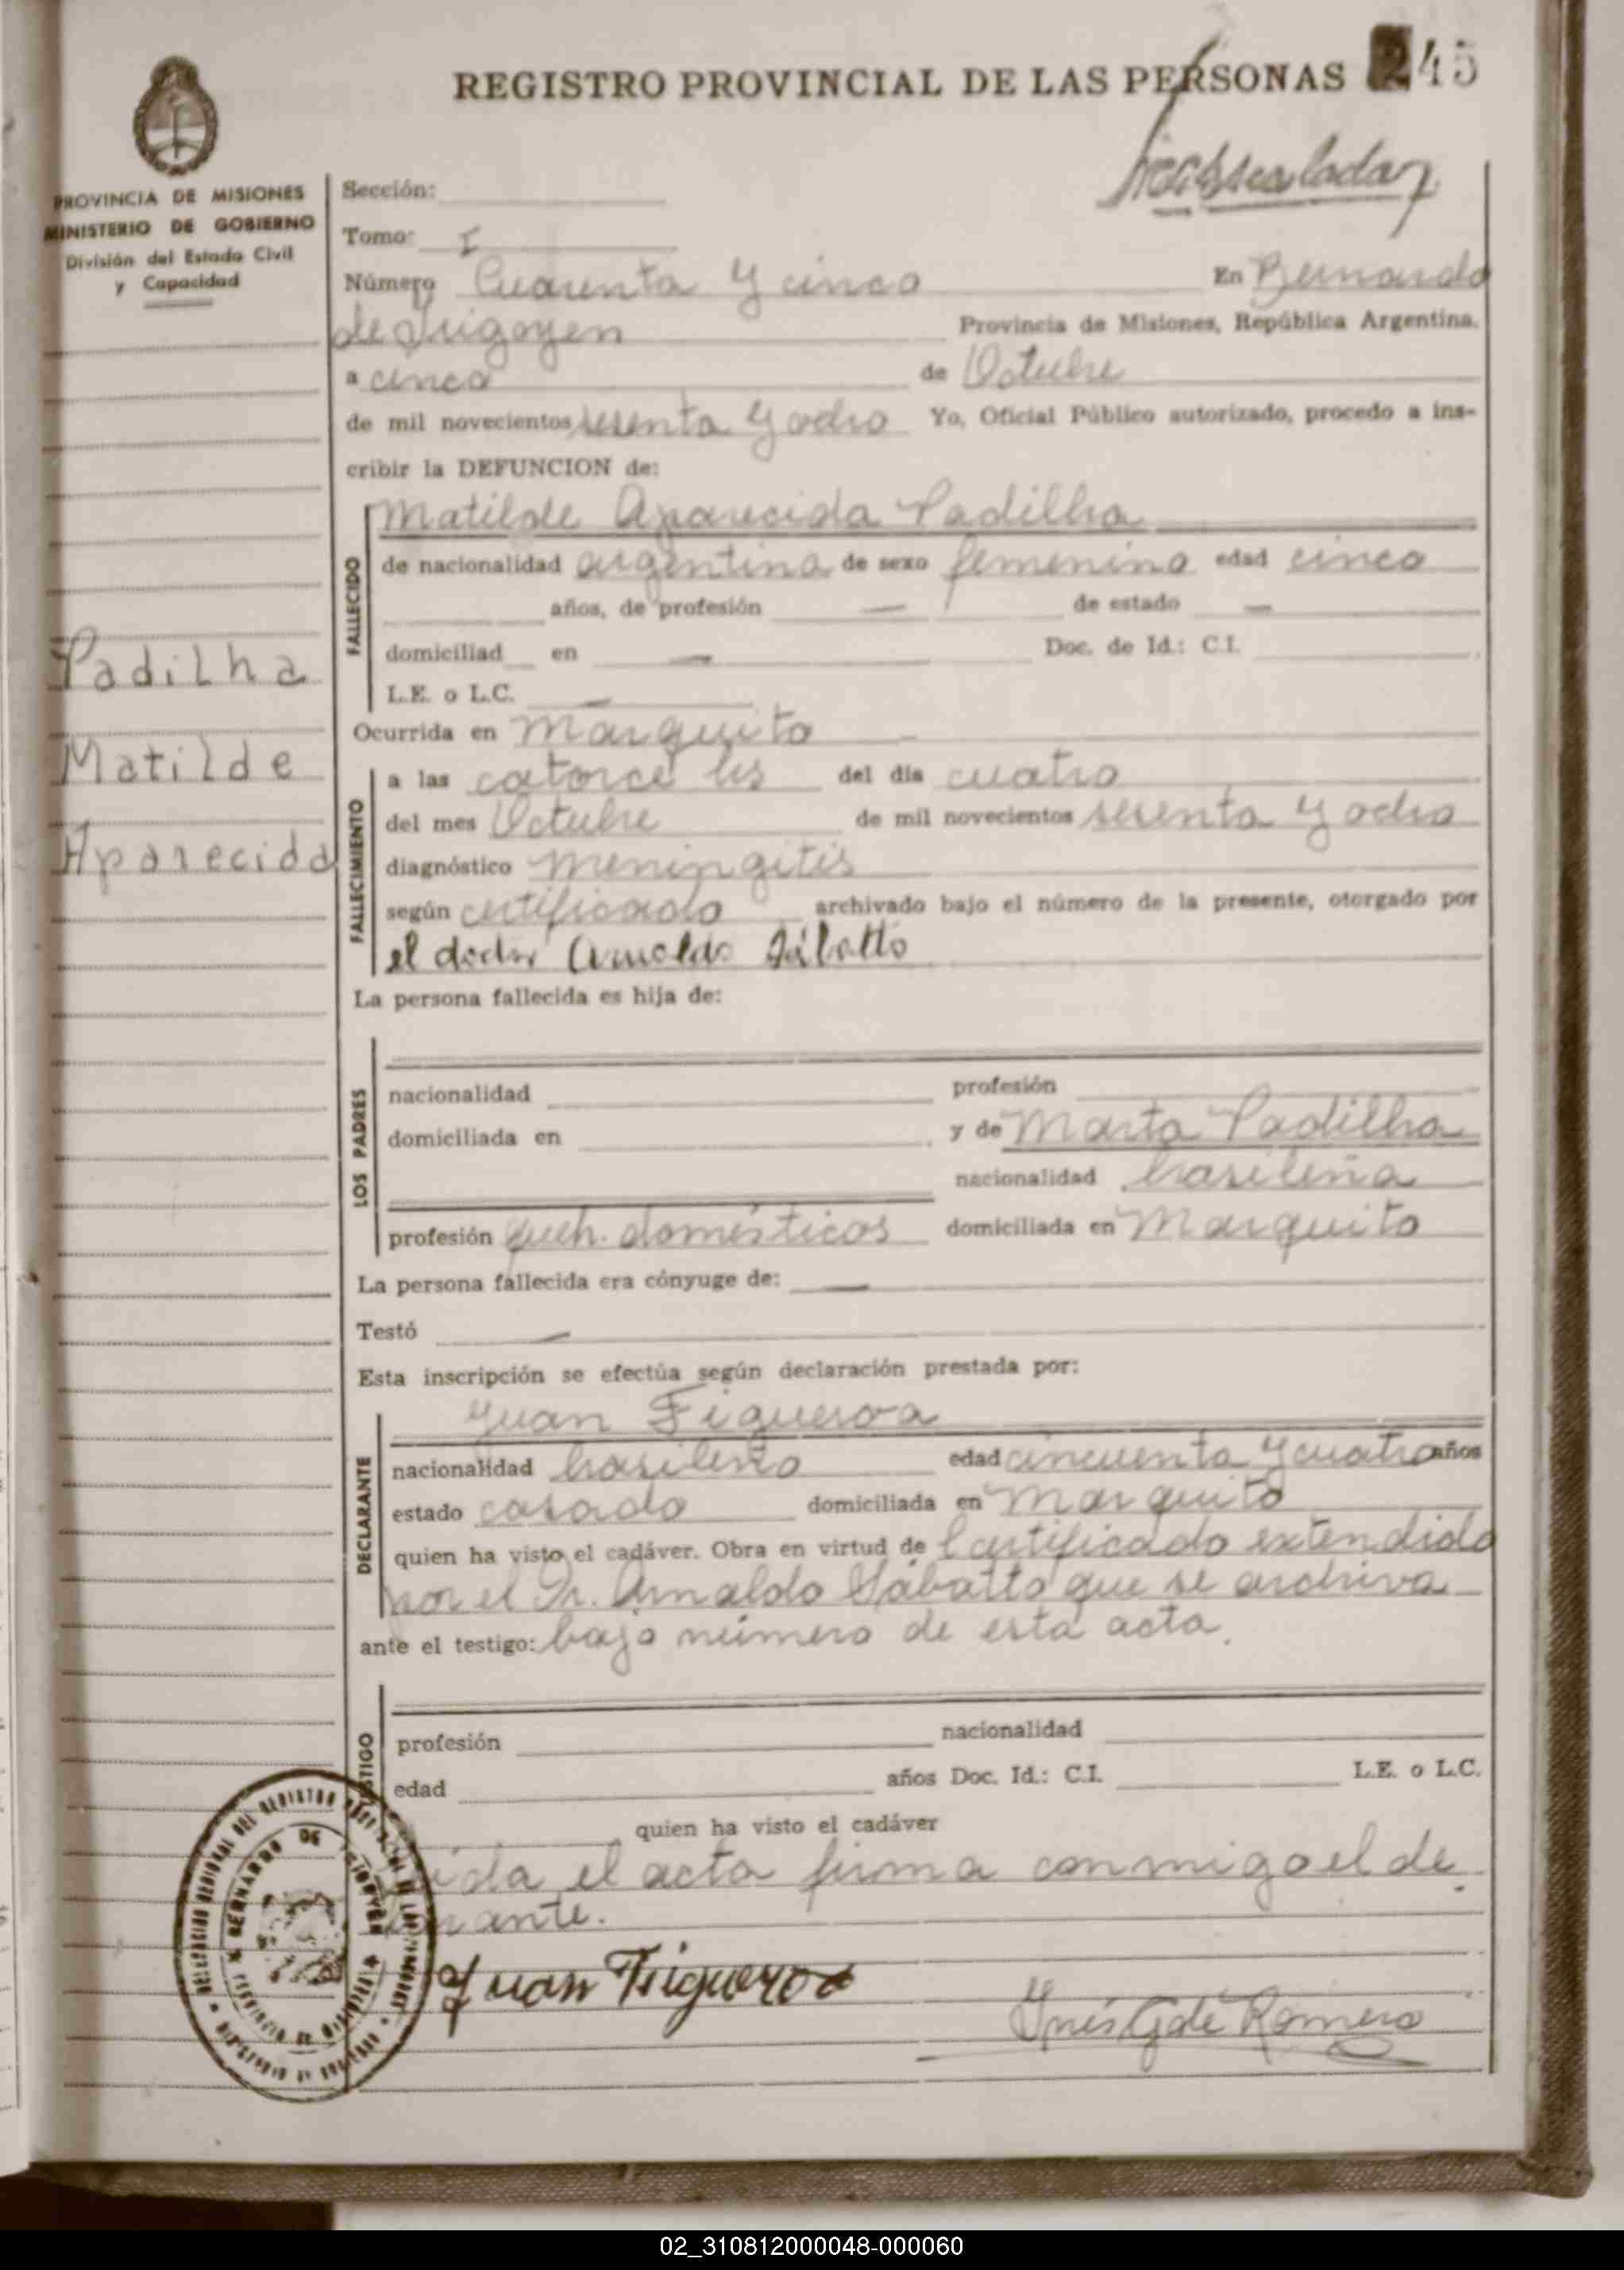 REGISTRO PROVINCIAL DE LAS PERSONAS 245
PROVINCIA DE MISIONES
MINISTERIO DE GOBIERNO
División del Estado Civil
y Capacidad
Sección:
Tomo: I
Número Cuarenta y cinco En Bernardo
de Irigoyen Provincia de Misiones, República Argentina.
a cinco de Octubre
de mil novecientos sesenta y ocho Yo, Oficial Público autorizado, procedo a ins-
cribir la DEFUNCION de:
FALLECIDO
Matilde Aparecida Padilha
de nacionalidad argentina de sexo femenino edad cinco
años, de profesión — de estado —
domiciliad en — Doc. de Id.: C.I.
L.E. o L.C. —
Padilha
Matilde
Aparecida
Ocurrida en Marquito
FALLECIMIENTO
a las catorce hs del día cuatro
del mes Octubre de mil novecientos sesenta y ocho
diagnóstico Meningitis
según certificado archivado bajo el número de la presente, otorgado por
el doctor Arnoldo Sábatto
La persona fallecida es hija de:
LOS PADRES
nacionalidad profesión
domiciliada en y de Marta Padilha
nacionalidad brasileña
profesión queh. domésticos domiciliada en Marquito
La persona fallecida era cónyuge de: —
Testó —
Esta inscripción se efectúa según declaración prestada por:
DECLARANTE
Juan Figueroa
nacionalidad brasileño edad cincuenta y cuatro años
estado casado domiciliada en Marquito
quien ha visto el cadáver. Obra en virtud de Certificado extendido
por el Dr. Arnaldo Sábatto que se archiva
ante el testigo: bajo número de esta acta.
profesión nacionalidad
edad años Doc. Id.: C.I. L.E. o L.C.
quien ha visto el cadáver
el acta firma conmigo el de
BERNARDO DE IRIGOYEN
Juan Figueroa
Inés G de Romero
02_310812000048-000060